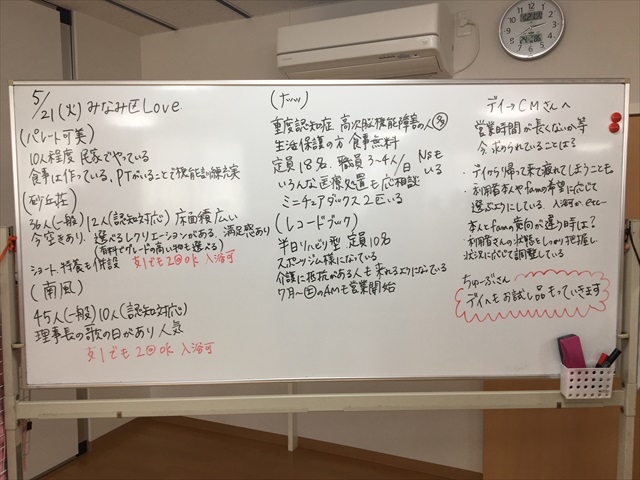 5/21(火) みなみ区Love
(パレート可美)
10人程度 民家でやっている
食事は作っている、PTがいることで機能訓練充実
(砂丘荘)
36人(一般) 12人(認知対応) 床面積広い
今空きあり. 選べるレクリエーションがある. 満足感あり
(有料でグレードの高い物も選べる)
ショート、特養も併設 支1でも2回ok 入浴可
(南風)
45人(一般) 10人(認知対応)
理事長の歌の日があり 人気
支1でも2回ok 入浴可
重度認知症 高次脳機能障害の人 多
生活保護の方 食事無料
定員18名. 職員3~4人/日 NSもいる
いろんな医療処置も応相談
ミニチュアダックス2匹いる
(レコードブック)
半日リハビリ型 定員10名
スポーツジム様になっている
介護に抵抗がある人も来れるようになっている
7月~土のAMも営業開始
デイ→CMさんへ
営業時間が長くないか等
今求められていることは?
・デイから帰って来て疲れてしまうことも
・利用者本人やfamの希望に応じて
選ぶようにしている、入浴か etc…
本人とfamの意向が違う時は?
利用者さんの状態をしっかり把握し
状況に応じて調整している
ちゅーぶさん
デイへもお試し品もっていきます